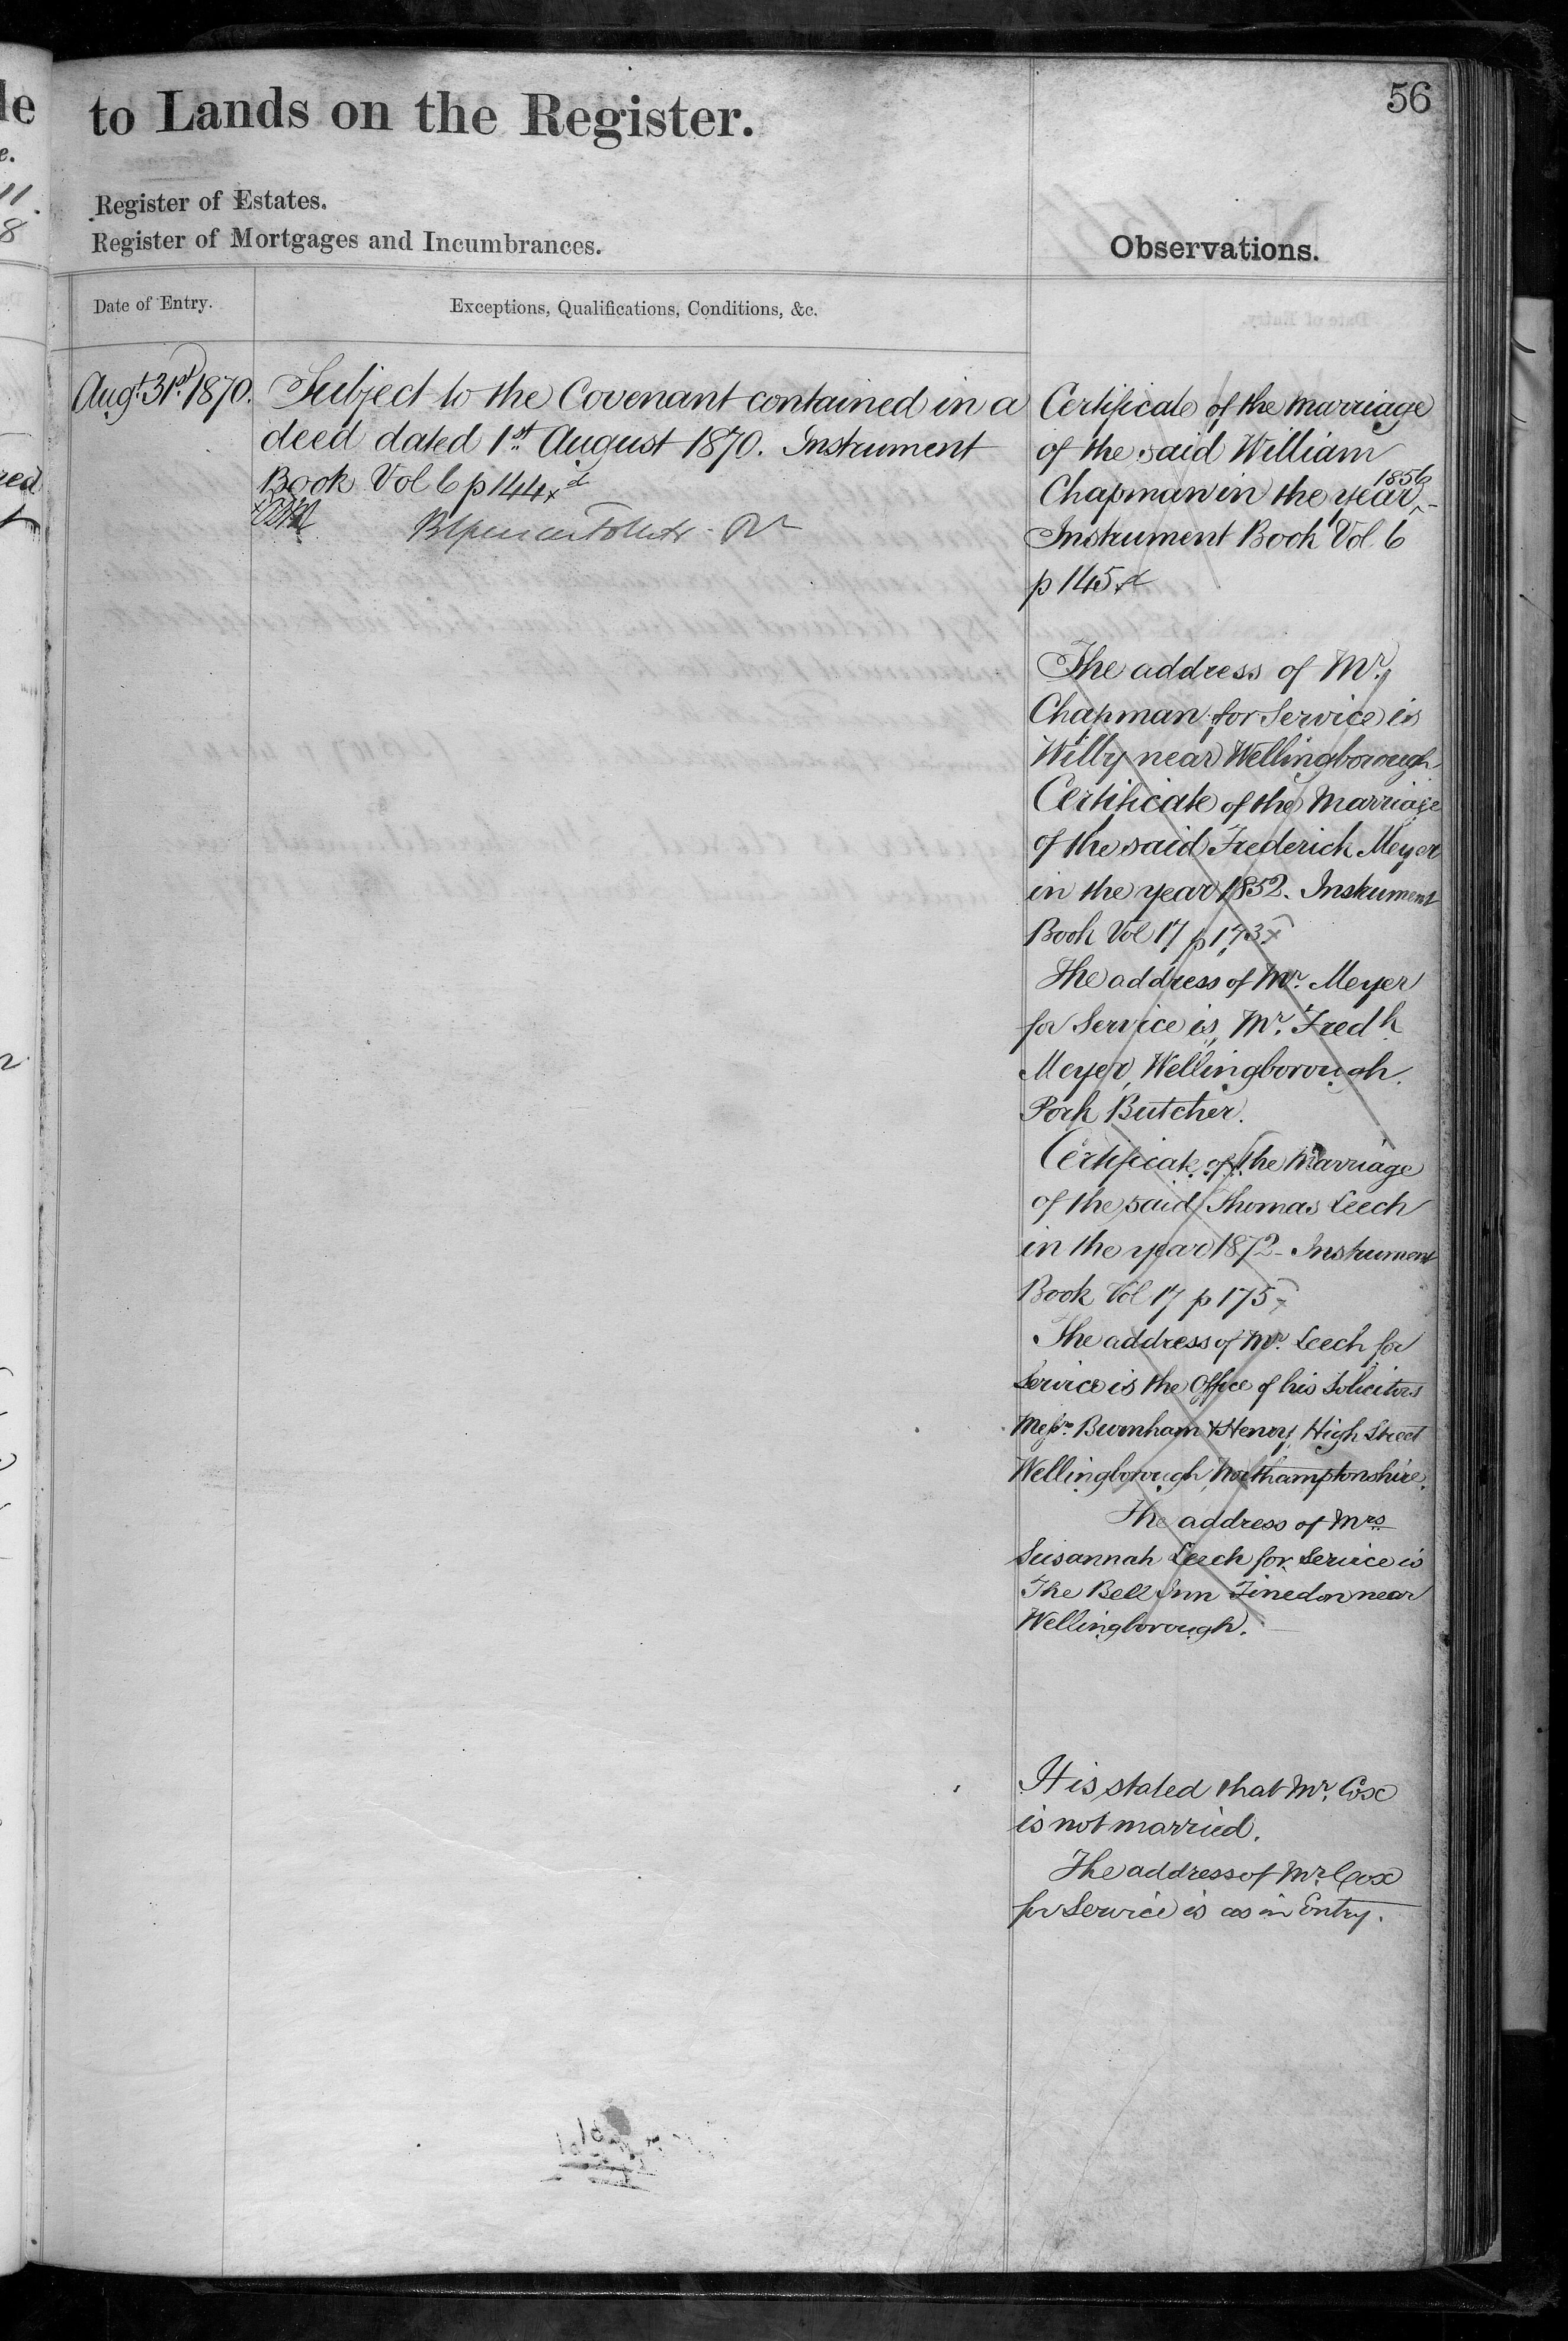 56
to Lands on the Register.
Register of Estates.
Register of Mortgages and Incumbrances.
Observations.
Date of Entry.
Exceptions, Qualifications, Conditions, &c.
Augt. 31st 1870.
Subject to the Covenant contained in a
deed dated 1st August 1870. Instrument
Book Vol 6 p 144
Certificate of the marriage
of the said William
Chapman in the year 1856
Instrument Book Vol 6
p 145
The address of Mr.
Chapman for Service is
Wilby near Wellingborough
Certificate of the Marriage
of the said Frederick Meyer
in the year 1852. Instrument
Book Vol 17 p 173
The address of Mr. Meyer
for Service is, Mr. Fredk
Meyer, Wellingborough.
Pork Butcher.
Certificate of the Marriage
of the said Thomas Leech
in the year 1872 - Instrument
Book Vol 17 p 175
The address of Mr. Leech for
Service is the Office of his Solicitors
Messrs. Burnham & Henry, High Street
Wellingborough, Northamptonshire.
The address of Mrs
Susannah Leech for Service is
The Bell Inn Finedon near
Wellingborough.
It is stated that Mr. Cox
is not married.
The address of Mr. Cox
for Service is as in Entry.